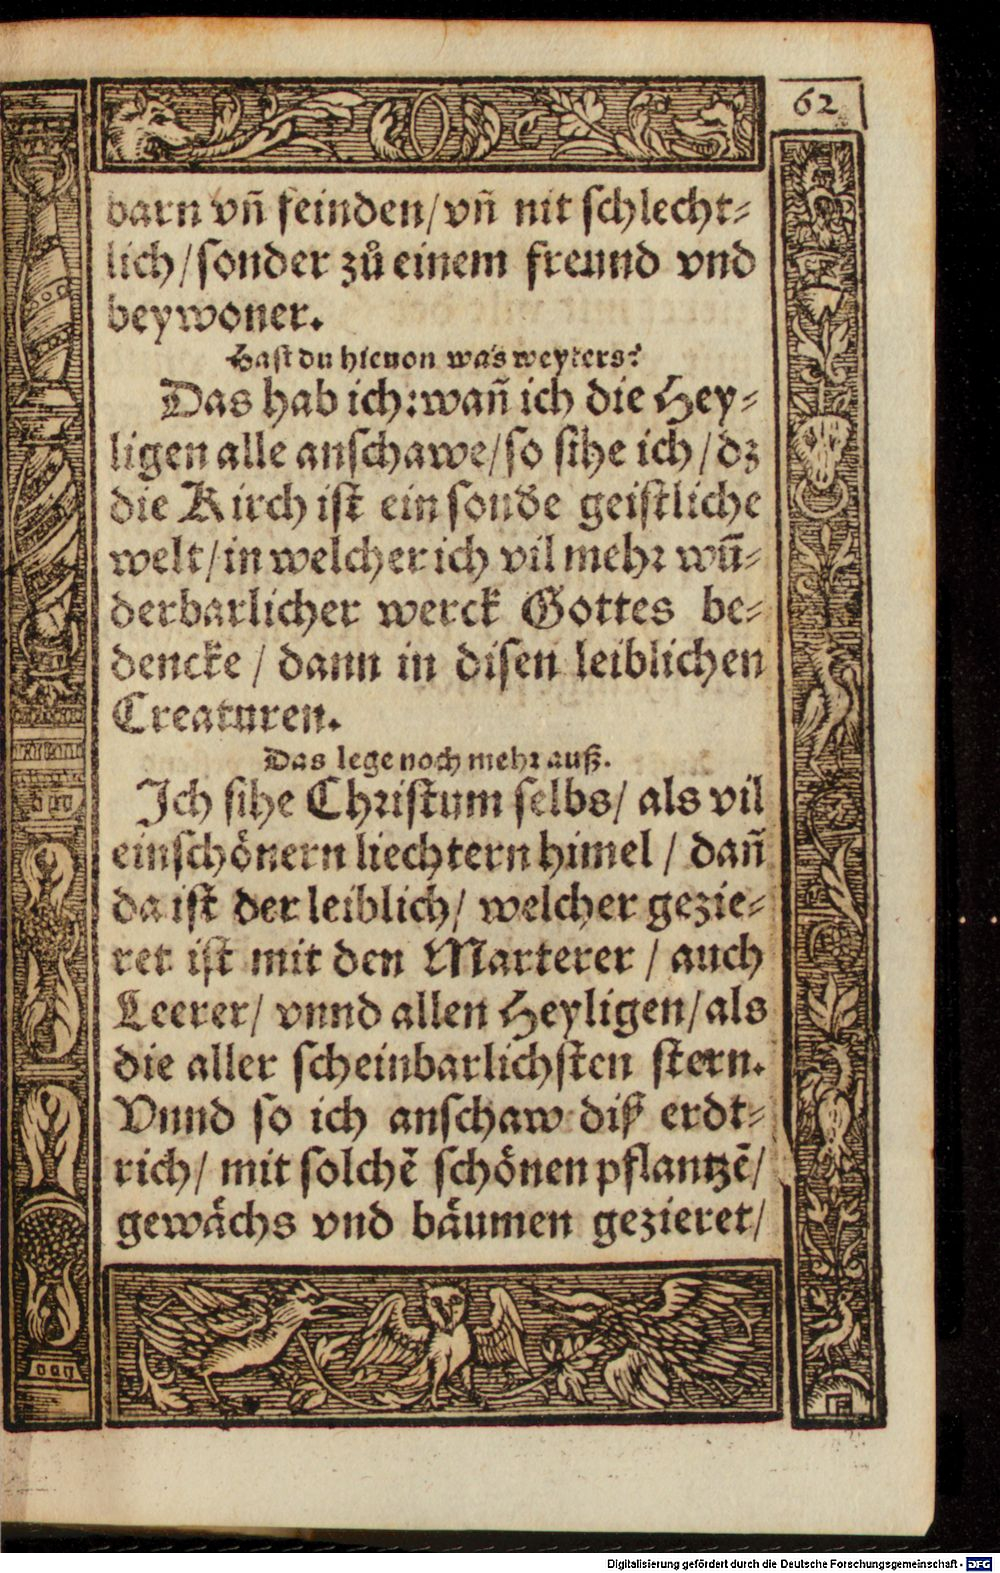 62
barn vñ feinden/vñ nit schlecht-
lich/sonder zů einem freund vnd
beywoner.
Hast du hieuon was weyters?
Das hab ich: wañ ich die Hey-
ligen alle anschawe/so sihe ich/dz
die Kirch ist ein sonde geistliche
welt/in welcher ich vil mehr wũ-
derbarlicher werck Gottes be-
dencke/ dann in disen leiblichen
Creaturen.
Das lege noch mehr auß.
Ich sihe Christum selbs/ als vil
einschönern liechtern himel/ dañ
da ist der leiblich/ welcher gezie-
ret ist mit den Marterer/ auch
Leerer/ vnnd allen Heyligen/als
die aller scheinbarlichsten stern.
Vnnd so ich anschaw diß erdt-
rich/ mit solchẽ schönen pflantzẽ/
gewächs vnd bäumen gezieret/
Digitalisierung gefördert durch die Deutsche Forschungsgemeinschaft - DFG